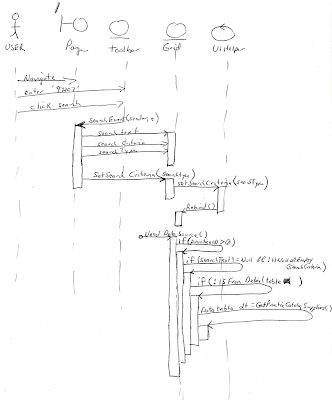 USER
Page
Toolbar
Grid
UI Helper
Navigate
enter '9707'
click search
searchEvent(
search text
search Criteria
search Type
SetSearch Criteria(searchType)
setSearchCriteria(searchType)
Rebind()
Need Data Source()
if(
if(SearchText != Null &&
SearchCriteria)
if(!is From Detail table)
Data table dt = GetPracticeCatalogSuppliers()